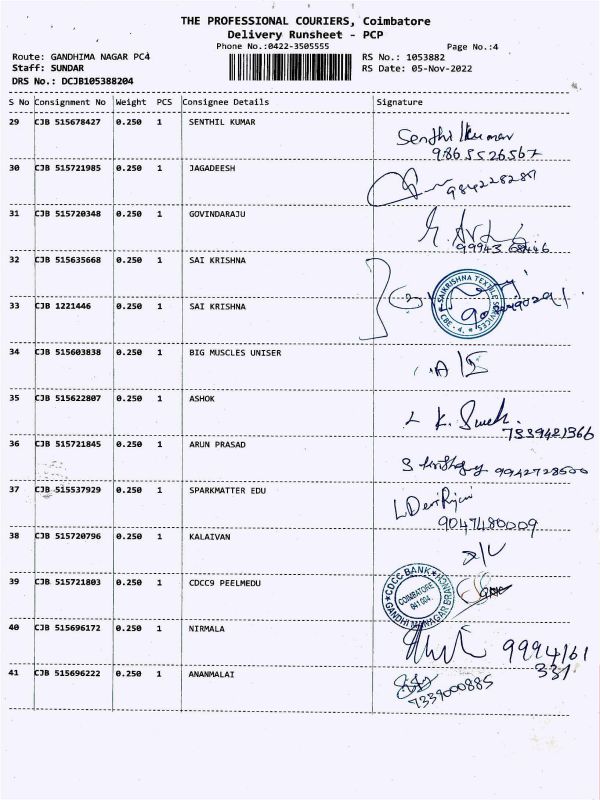 THE PROFESSIONAL COURIERS, Coimbatore
Delivery Runsheet - PCP
Phone No.:0422-3505555
Page No.:4
Route: GANDHIMA NAGAR PC4
RS No.: 1053882
Staff: SUNDAR
RS Date: 05-Nov-2022
DRS No.: DCJB105388204
S No Consignment No Weight PCS Consignee Details Signature
29 CJB 515678427 0.250 1 SENTHIL KUMAR
Senthilkumar
9865526567
30 CJB 515721985 0.250 1 JAGADEESH
31 CJB 515720348 0.250 1 GOVINDARAJU
32 CJB 515635668 0.250 1 SAI KRISHNA
SAIKRISHNA TEXTILE SERVICES
CBE - 4.
33 CJB 1221446 0.250 1 SAI KRISHNA
34 CJB 515603838 0.250 1 BIG MUSCLES UNISER
35 CJB 515622807 0.250 1 ASHOK
7339481366
36 CJB 515721845 0.250 1 ARUN PRASAD
9942728500
37 CJB 515537929 0.250 1 SPARKMATTER EDU
9047480009
38 CJB 515720796 0.250 1 KALAIVAN
39 CJB 515721803 0.250 1 CDCC9 PEELMEDU
CDCC BANK
GANDHI MANAGAR BRANCH
COIMBATORE
641 004
40 CJB 515696172 0.250 1 NIRMALA
9994161
331
41 CJB 515696222 0.250 1 ANANMALAI
7339000885